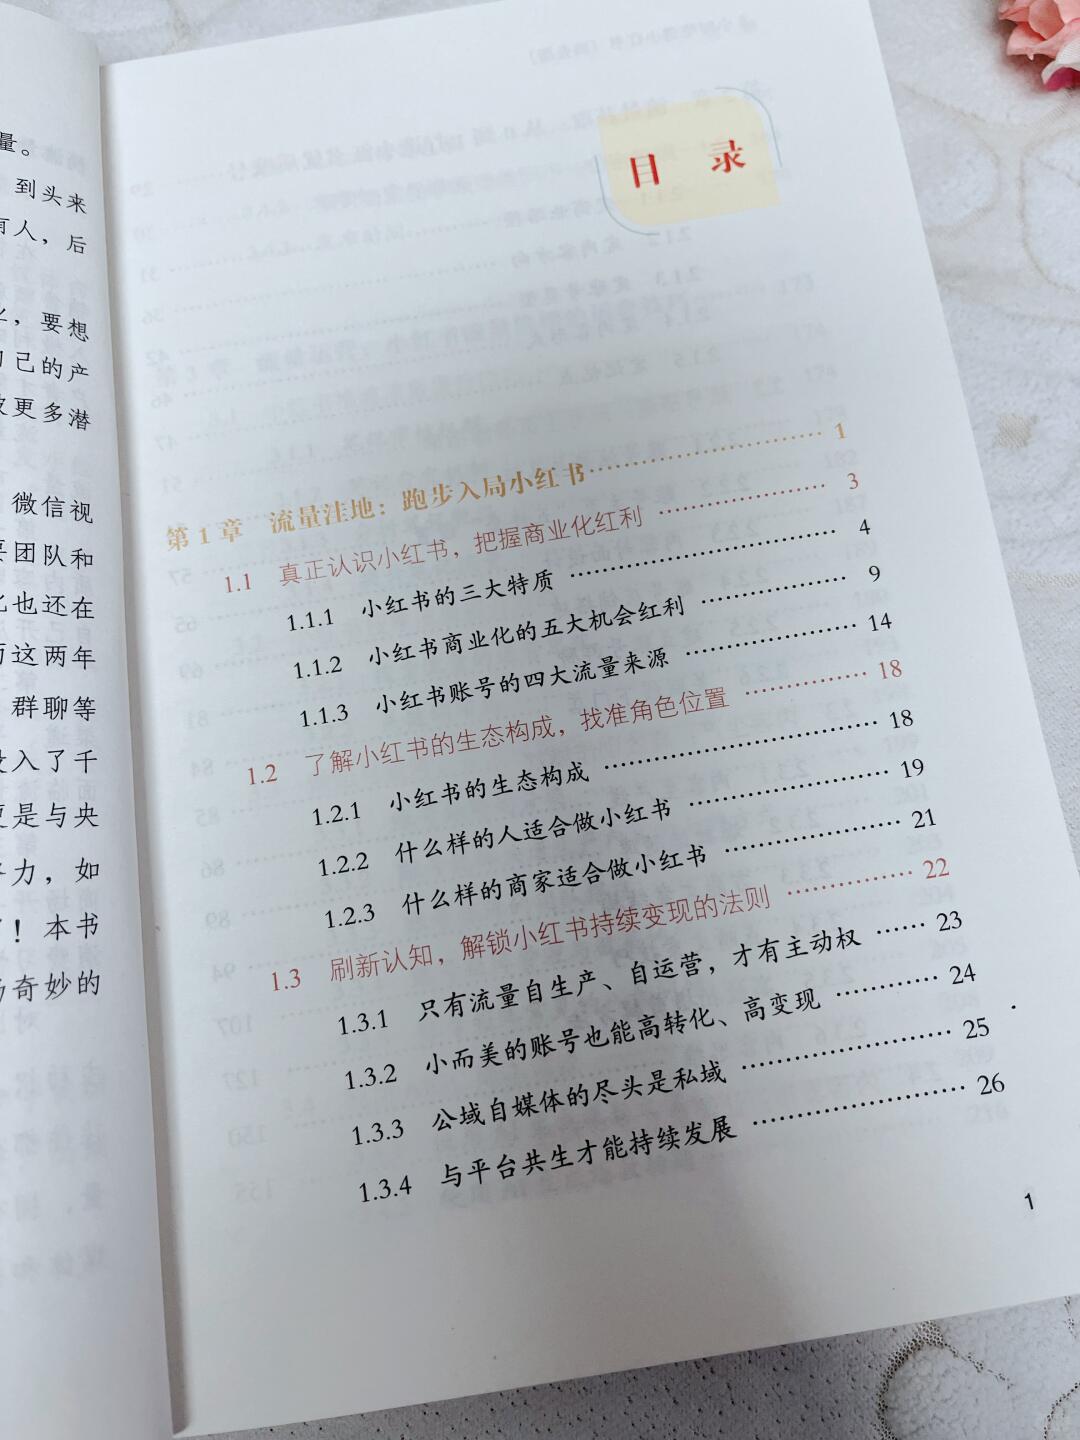 量。
到头来
有人，后
要想
己的产
更多潜
微信视
团队和
也还在
这两年
群聊等
入了千
是与央
力，如
！本书
奇妙的
目 录
第 1 章 流量洼地：跑步入局小红书 1
1.1 真正认识小红书，把握商业化红利 3
1.1.1 小红书的三大特质 4
1.1.2 小红书商业化的五大机会红利 9
1.1.3 小红书账号的四大流量来源 14
1.2 了解小红书的生态构成，找准角色位置 18
1.2.1 小红书的生态构成 18
1.2.2 什么样的人适合做小红书 19
1.2.3 什么样的商家适合做小红书 21
1.3 刷新认知，解锁小红书持续变现的法则 22
1.3.1 只有流量自生产、自运营，才有主动权 23
1.3.2 小而美的账号也能高转化、高变现 24
1.3.3 公域自媒体的尽头是私域 25
1.3.4 与平台共生才能持续发展 26
1